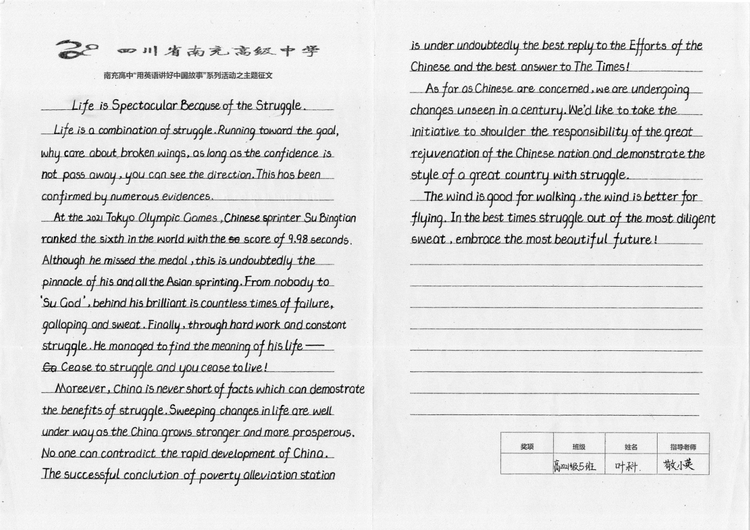 四川省南充高级中学
南充高中“用英语讲好中国故事”系列活动之主题征文
Life is Spectacular Because of the Struggle.
Life is a combination of struggle. Running toward the goal,
why care about broken wings, as long as the confidence is
not pass away, you can see the direction. This has been
confirmed by numerous evidences.
At the 2021 Tokyo Olympic Games, Chinese sprinter Su Bingtian
ranked the sixth in the world with the score of 9.98 seconds.
Although he missed the medal, this is undoubtedly the
pinnacle of his and all the Asian sprinting. From nobody to
'Su God', behind his brilliant is countless times of failure,
galloping and sweat. Finally, through hard work and constant
struggle. He managed to find the meaning of his life——
Cease to struggle and you cease to live!
Moreever, China is never short of facts which can demostrate
the benefits of struggle. Sweeping changes in life are well
under way as the China grows stronger and more prosperous.
No one can contradict the rapid development of China.
The successful conclution of poverty alleviation station
is under undoubtedly the best reply to the Efforts of the
Chinese and the best answer to The Times!
As far as Chinese are concerned, we are undergoing
changes unseen in a century. We'd like to take the
initiative to shoulder the responsibility of the great
rejuvenation of the Chinese nation and demonstrate the
style of a great country with struggle.
The wind is good for walking, the wind is better for
flying. In the best times struggle out of the most diligent
sweat, embrace the most beautiful future!
奖项 班级 姓名 指导老师
高2021级5班 叶科 敬小英